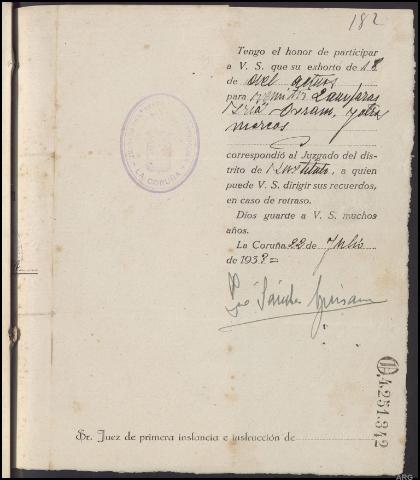 182
Tengo el honor de participar
a V. S. que su exhorto de 18
de del actual
para remitir Lamparas
"Iria" Osram, y otras
marcas
correspondió al Juzgado del dis-
trito de Instituto, a quien
puede V. S. dirigir sus recuerdos,
en caso de retraso.
Dios guarde a V. S. muchos
años.
La Coruña 22 de Julio
de 1938=
Sánchez
LA CORUÑA
D.4.251.342
Sr. Juez de primera instancia e instrucción de
ARG